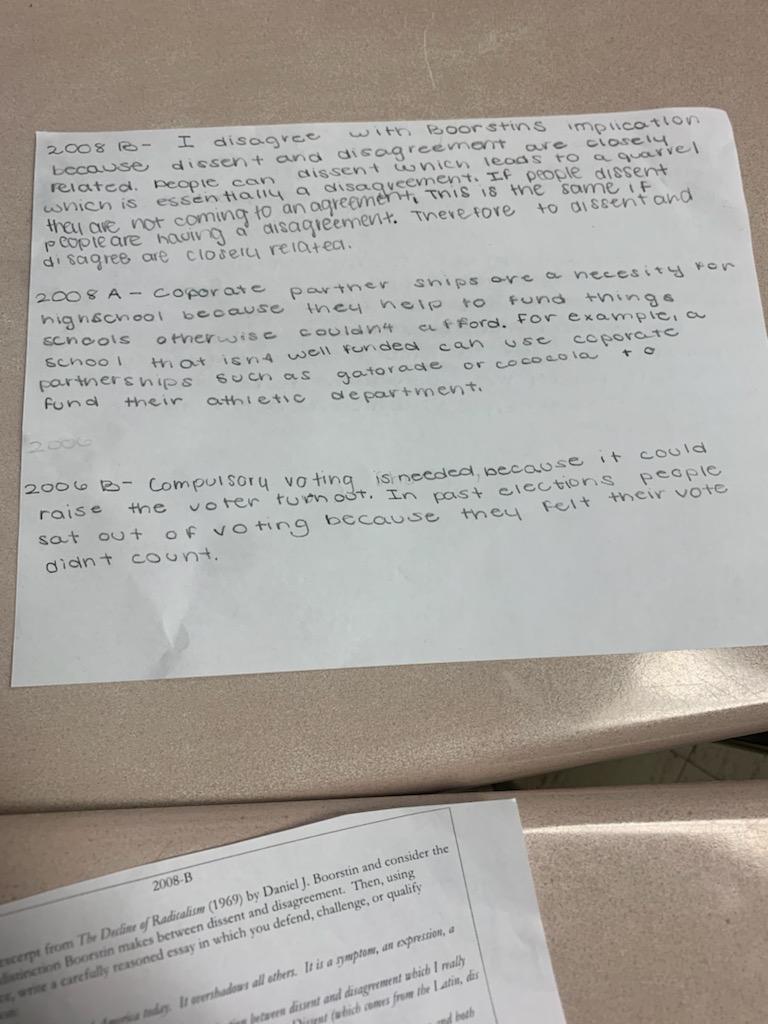 2008 B- I disagree with Boorstins implication
because dissent and disagreement are closely
related. people can dissent which leads to a quarrel
which is essentially a disagreement. If people dissent
they are not coming to an agreement, This is the same if
people are having a disagreement. Therefore to dissent and
disagree are closely related.
2008 A - Coporate partner ships are a necesity for
highschool because they help to fund things
schools otherwise couldnt afford. For example, a
school that isnt well funded can use coporate
partnerships such as gatorade or cococola to
fund their athletic department.
2006
2006 B- Compulsory voting is needed, because it could
raise the voter turn out. In past elections people
sat out of voting because they felt their vote
didnt count.
2008-B
excerpt from The Decline of Radicalism (1969) by Daniel J. Boorstin and consider the
distinction Boorstin makes between dissent and disagreement. Then, using
write a carefully reasoned essay in which you defend, challenge, or qualify
America today. It overshadows all others. It is a symptom, an expression, a
between dissent and disagreement which I really
Dissent (which comes from the Latin, dis
and both